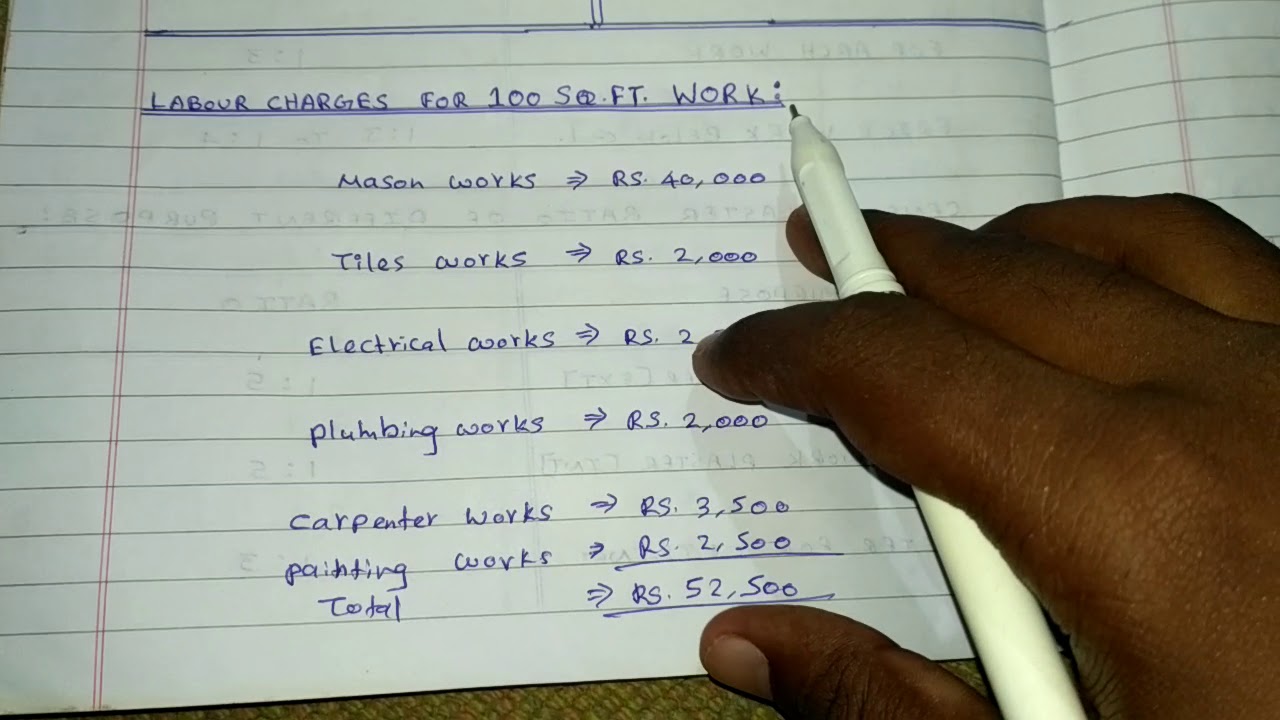 LABOUR CHARGES FOR 100 SQ.FT. WORK:
Mason works ⇒ RS. 40,000
Tiles works ⇒ RS. 2,000
Electrical works ⇒ RS. 2
plumbing works ⇒ RS. 2,000
carpenter works ⇒ RS. 3,500
painting works ⇒ RS. 2,500
Total ⇒ RS. 52,500